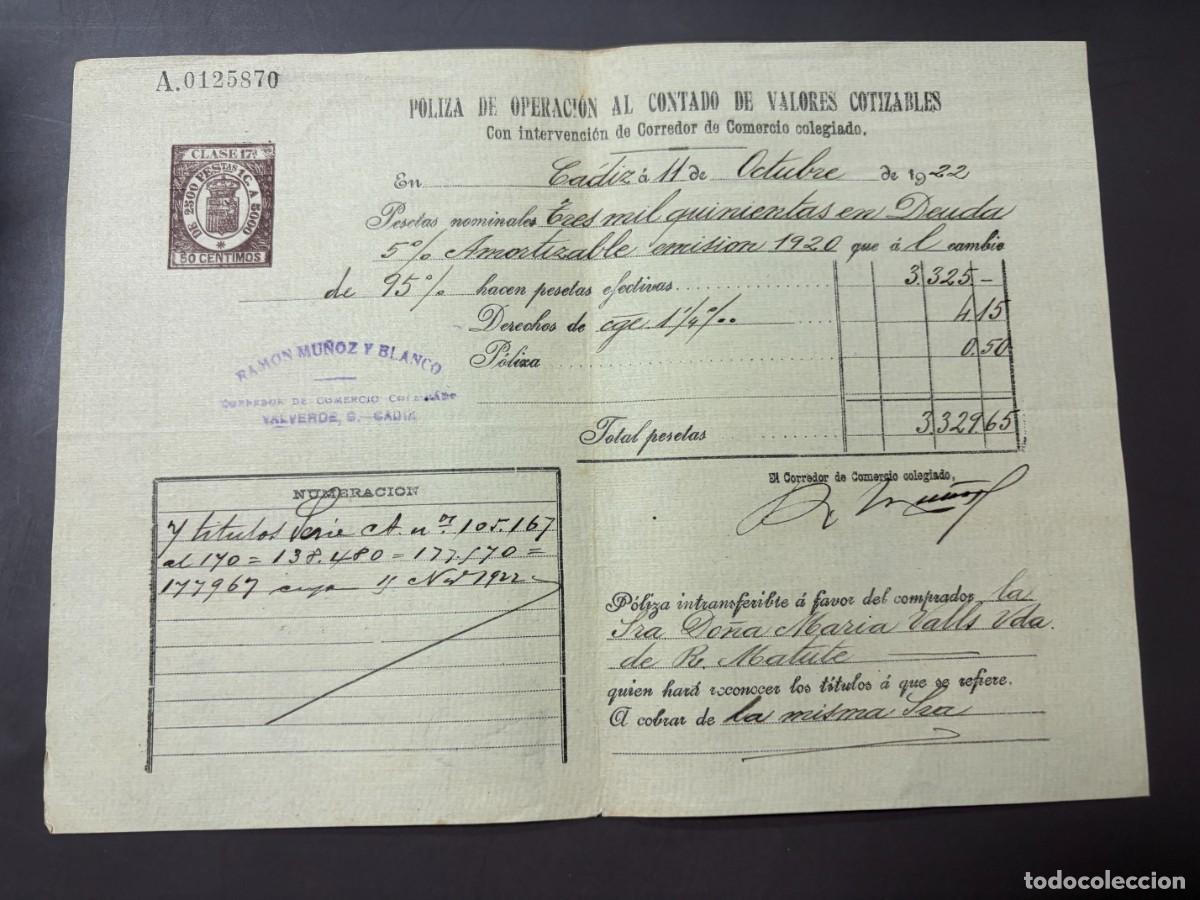 A.0125870
POLIZA DE OPERACIÓN AL CONTADO DE VALORES COTIZABLES
Con intervención de Corredor de Comercio colegiado.
CLASE 17ª
DE 2500 PESTAS 1 C. A 5000
50 CENTIMOS
En Cádiz á 11 de Octubre de 1922
Pesetas nominales Tres mil quinientas en Deuda
5% Amortizable emision 1920 que á l cambio
de 95% hacen pesetas efectivas 3.325 -
Derechos de cge 1 1/4 ‰ 4.15
Póliza 0.50
RAMON MUÑOZ Y BLANCO
CORREDOR DE COMERCIO COLEGIADO
VALVERDE, CADIZ
Total pesetas 3.329.65
El Corredor de Comercio colegiado,
R. Muñoz
NUMERACION
7 titulos Serie A. nos 105.167
al 170 = 138.480 = 177.570 =
177967 cupon 15 Nov 1922
Póliza intransferible á favor del comprador la
Sra Doña Maria Valls Vda
de R. Matute
quien hará reconocer los títulos á que se refiere.
A cobrar de la misma Sra
todocoleccion